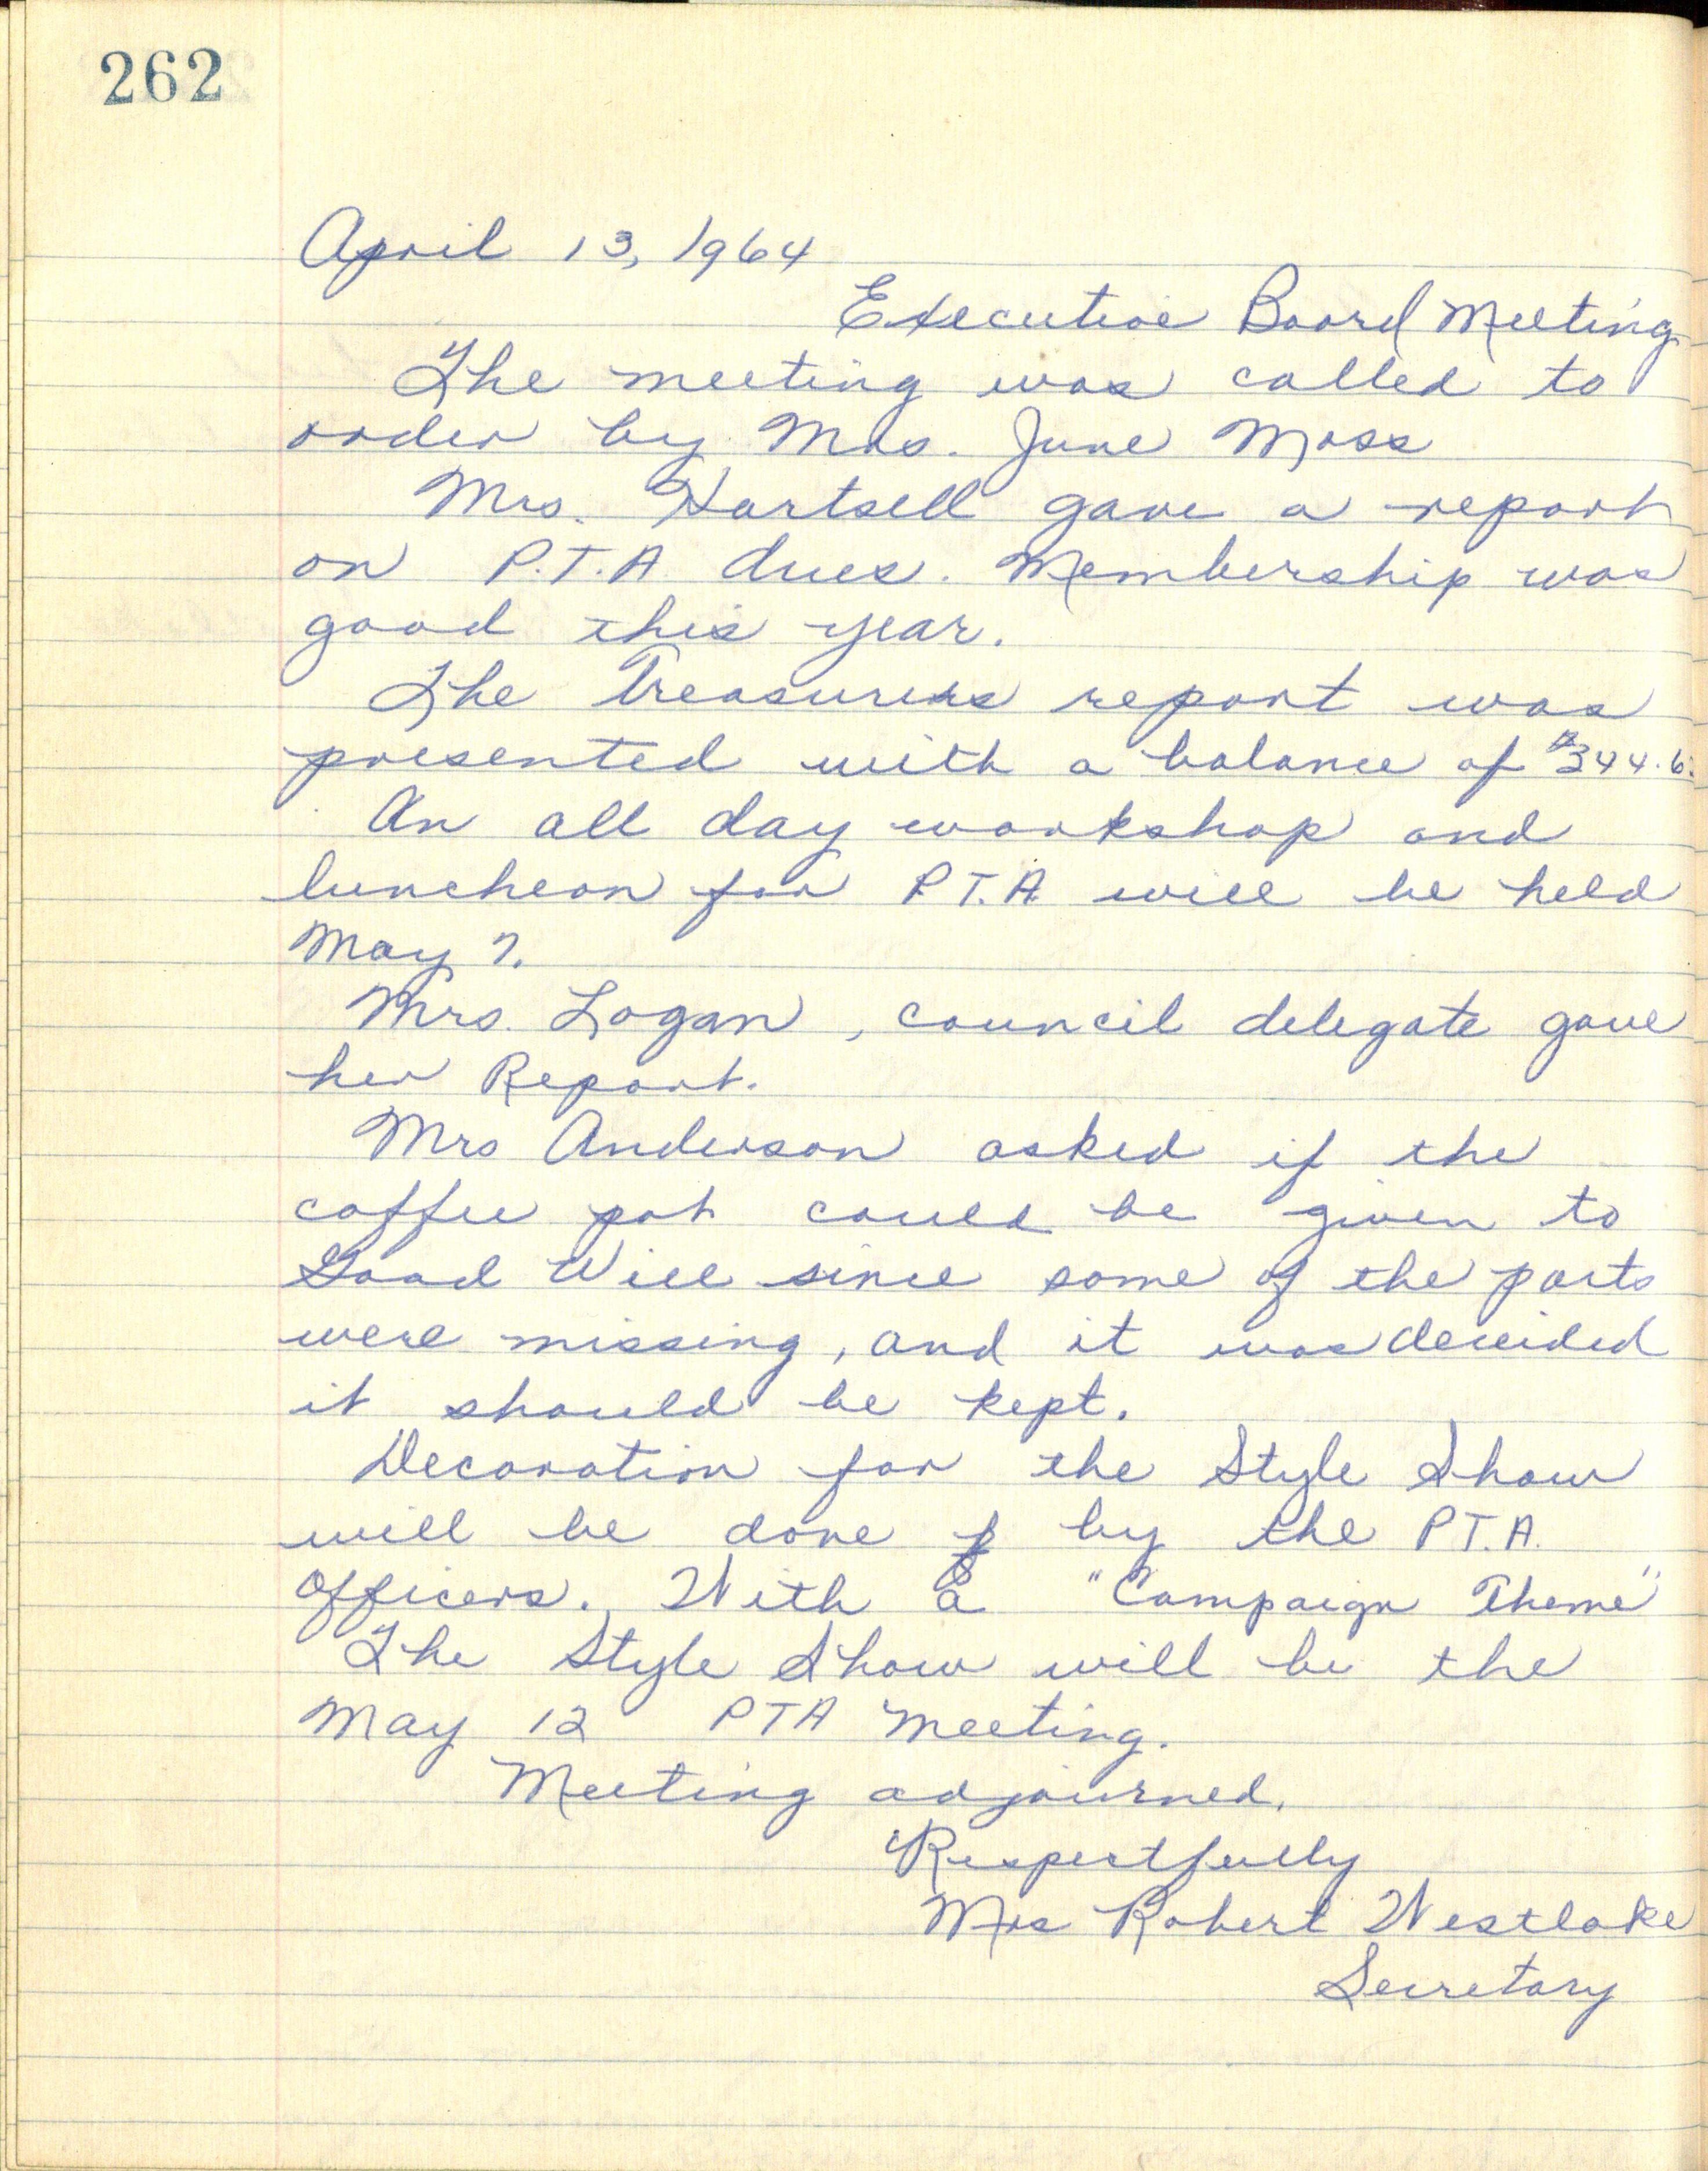 262
April 13, 1964
Executive Board Meeting
The meeting was called to
order by Mrs. June Moss
Mrs. Hartsell gave a report
on P.T.A dues. Membership was
good this year.
The Treasurers report was
presented with a balance of $344.6
An all day workshop and
luncheon for P.T.A. will be held
May 7.
Mrs. Logan, council delegate gave
her Report.
Mrs Anderson asked if the
coffee pot could be given to
Good Will since some of the parts
were missing, and it was decided
it should be kept.
Decoration for the Style Show
will be done by the P.T.A.
Officers. With a "Campaign Theme"
The Style Show will be the
May 12 PTA meeting.
Meeting adjourned.
Respectfully
Mrs Robert Westlake
Secretary